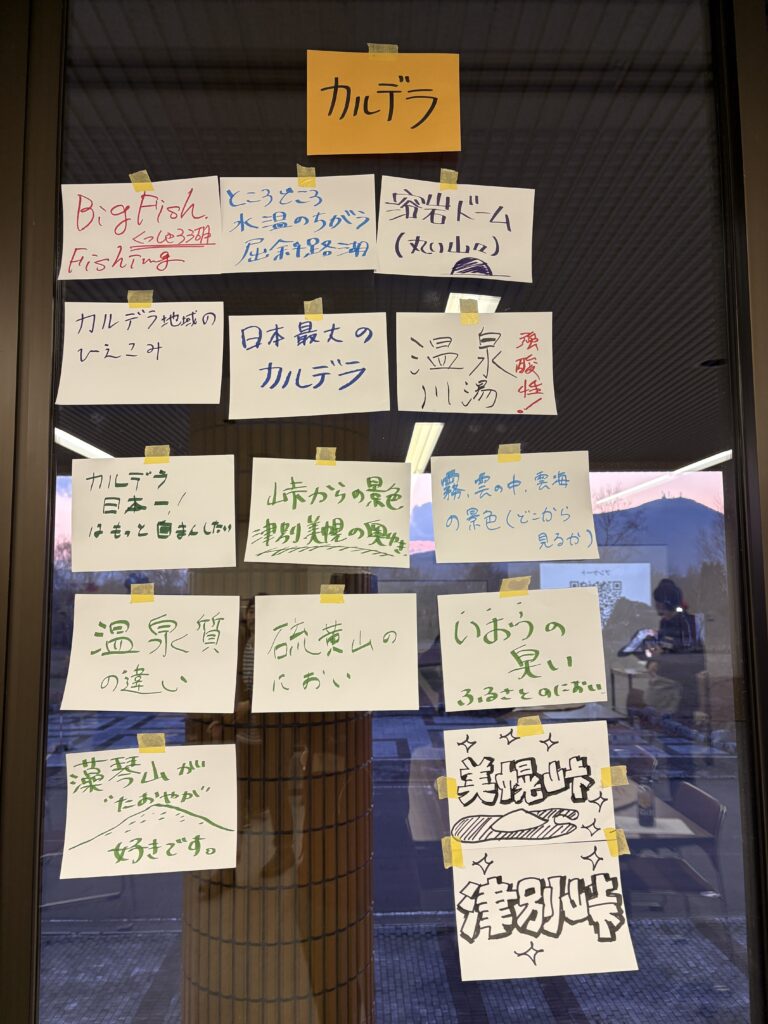 カルデラ
Big Fish.
くっしゃろ湖
Fishing
ところどころ
水温のちがう
屈斜路湖
溶岩ドーム
(丸い山々)
カルデラ地域の
ひえこみ
日本最大の
カルデラ
温泉
川湯
強酸性!
カルデラ
日本一!
はもっと自まんしたい
峠からの景色
津別美幌の奥行き
霧、雲の中、雲海
の景色(どこから
見るか)
温泉質
の違い
硫黄山の
におい
いおうの
臭い
ふるさとのにおい
藻琴山が
"たおやか"
好きです。
美幌峠
津別峠
アンケート